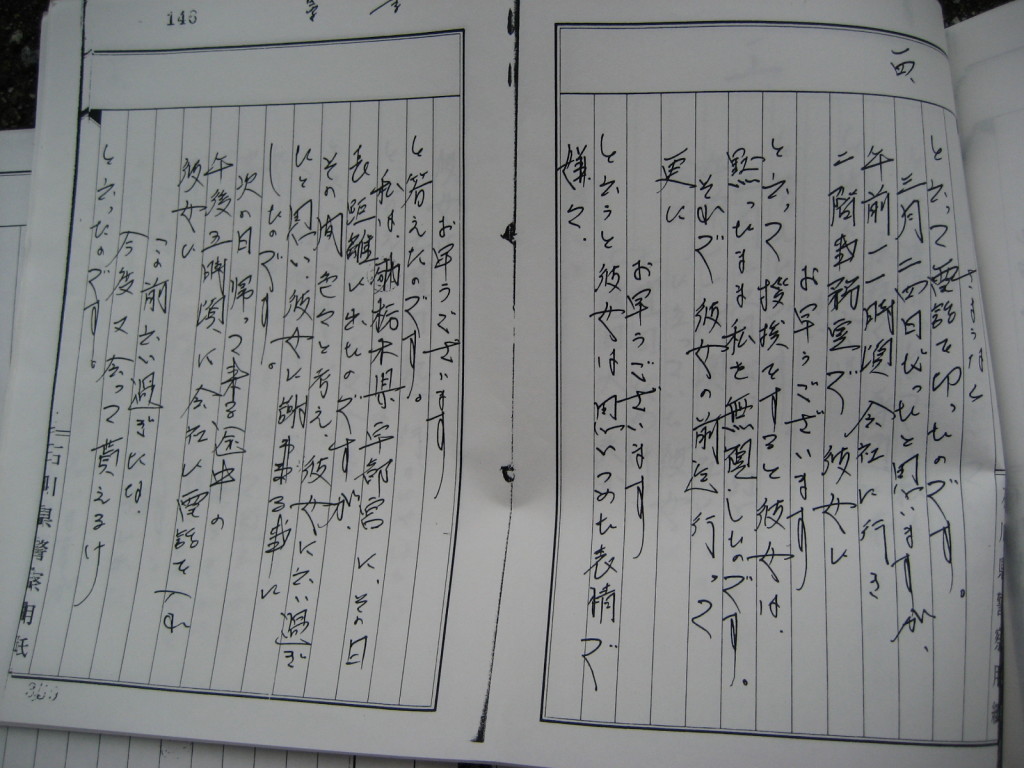 一四、
さようなら
と云って電話を切ったのです。
三月二四日だったと思いますが、
午前一一時頃会社に行き
二階事務室で彼女に
お早うございます
と云って挨拶をすると彼女は、
黙ったまま私を無視したのです。
それで彼女の前迄行って
更に
お早うございます
と云うと彼女は思いつめた表情で
嫌々、
146
お早うございます
と答えたのです。
私は、栃木県宇都宮に、その日
長距離に出たのですが、
その間色々と考え、彼女に云い過ぎ
たと思い彼女に謝まる事に
したのです。
次の日帰って来る途中の
午後五時頃、に会社に電話を入れ
彼女に
この前云い過ぎたな
今度又会って貰えるけ
と云ったのです。
石川県警察用紙